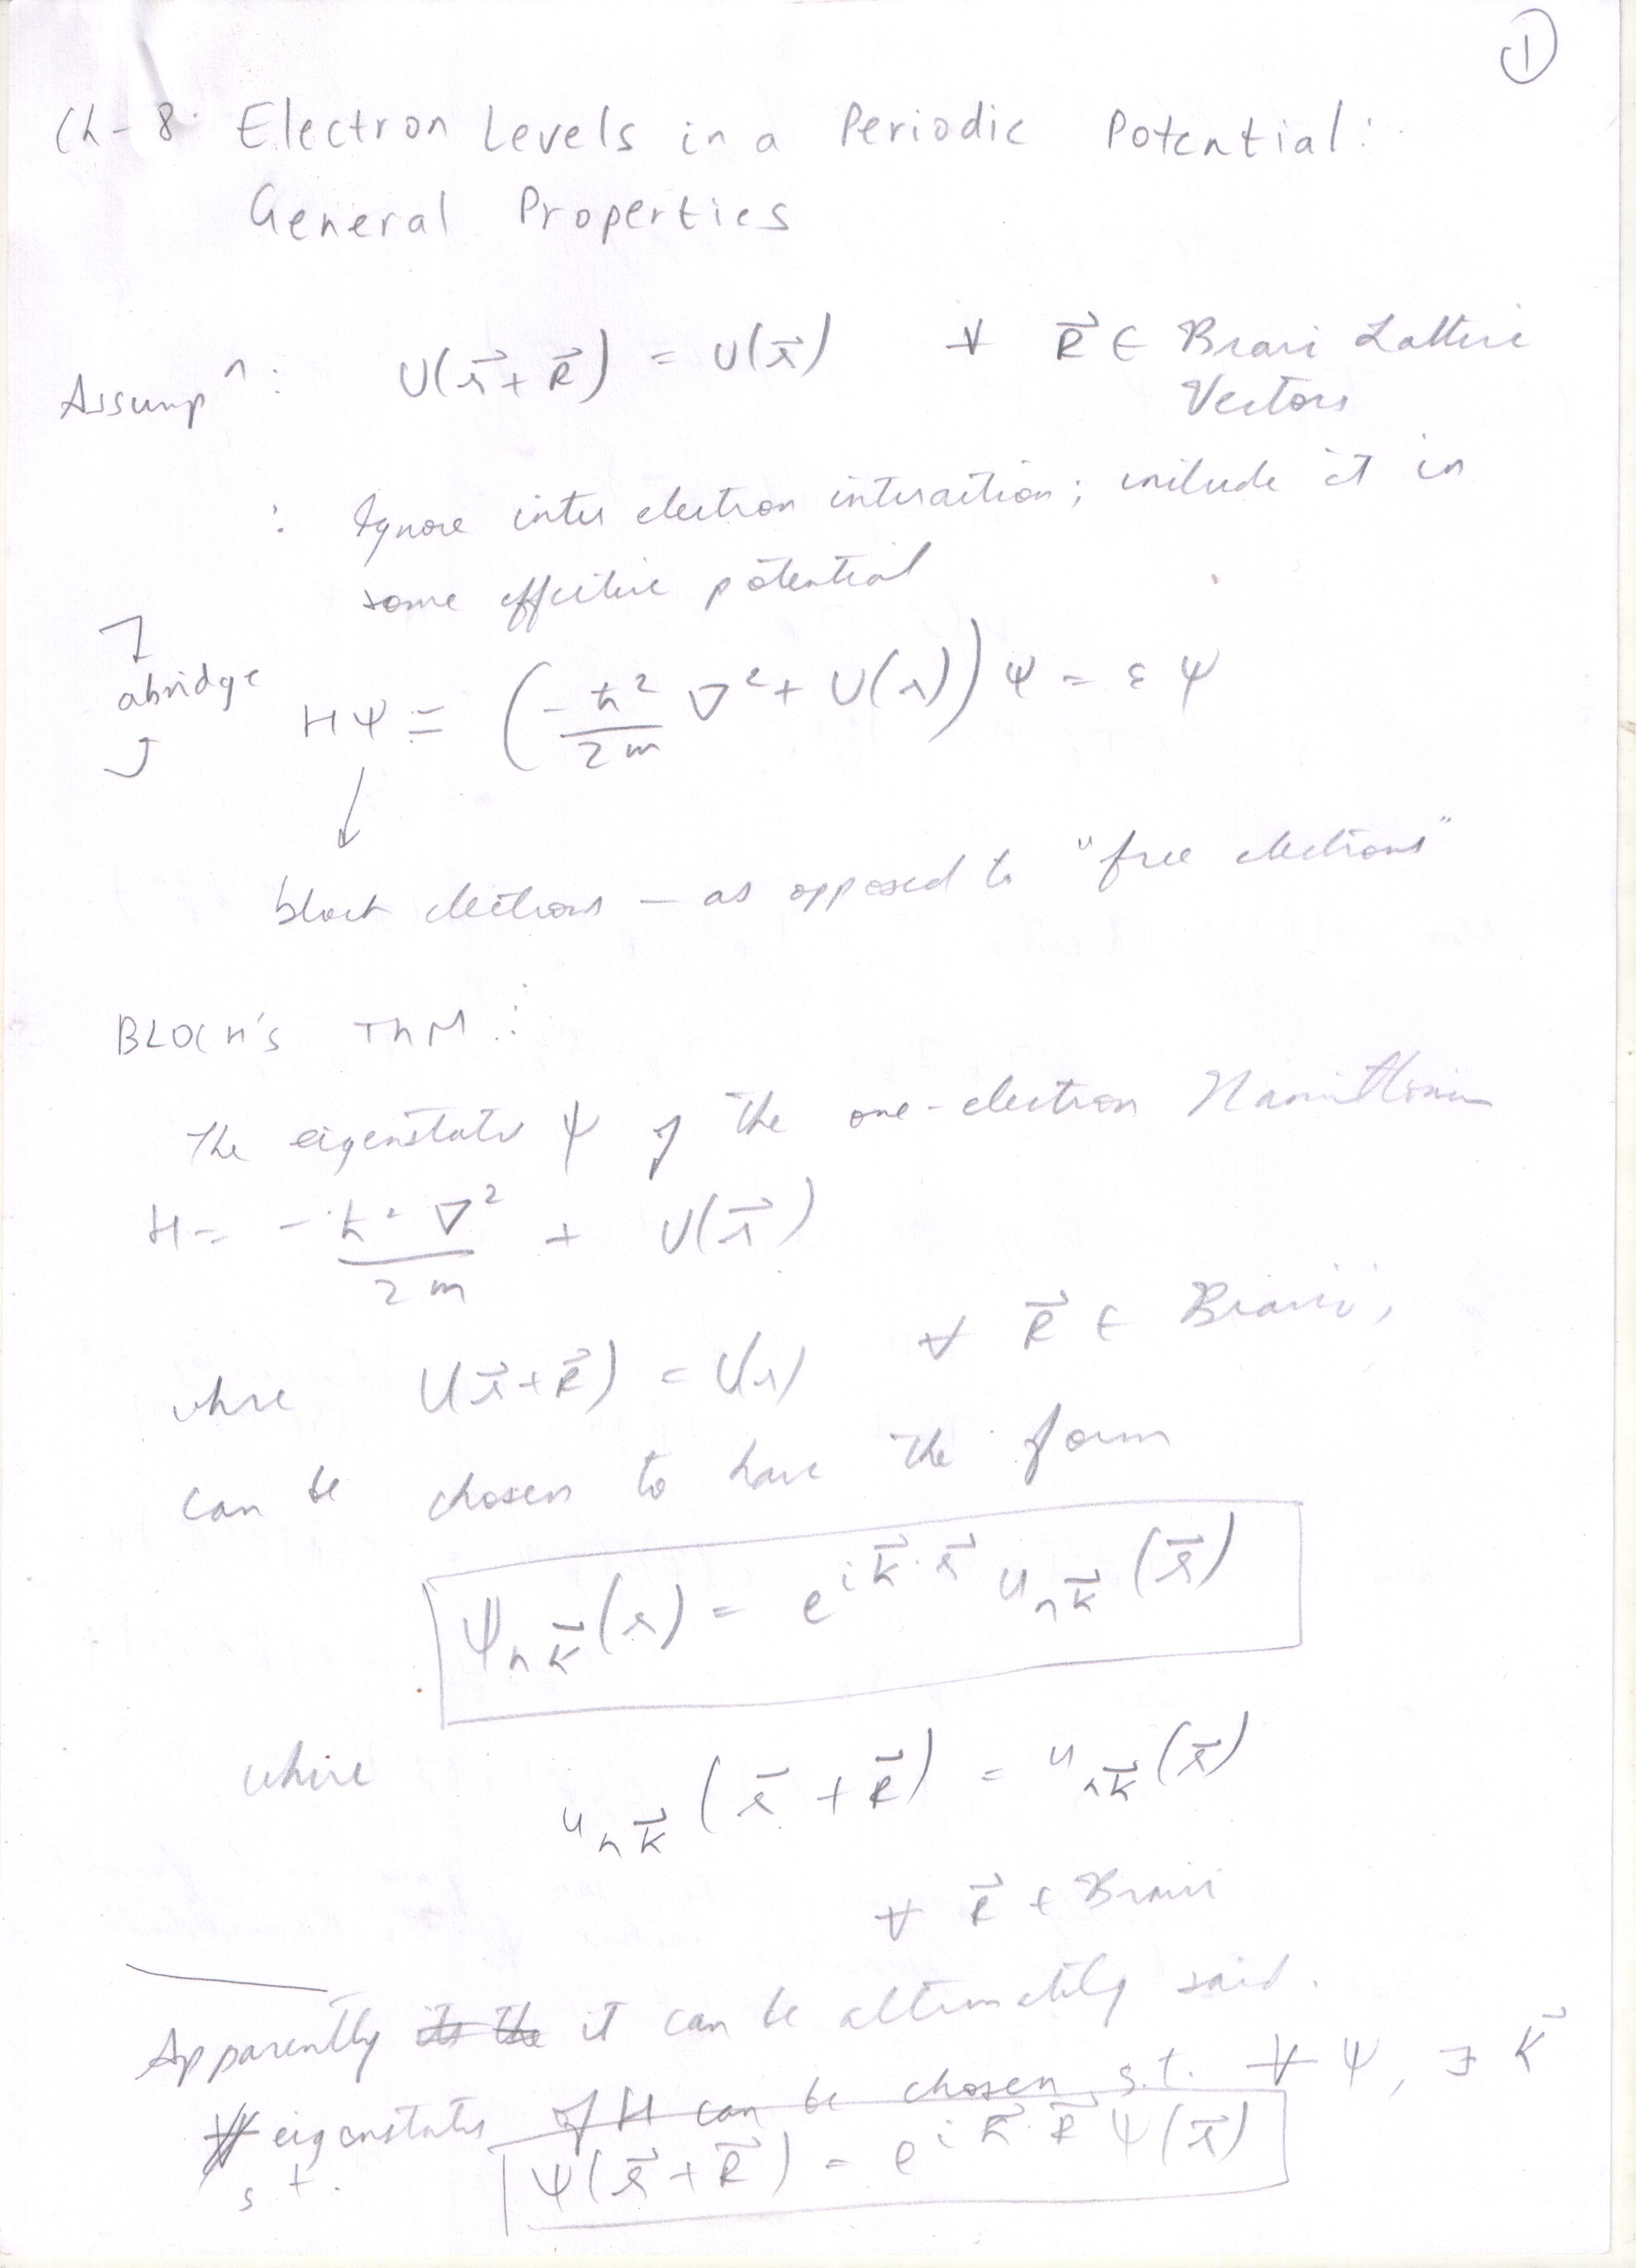 ①
Ch-8: Electron Levels in a Periodic Potential:
General Properties
Assumpⁿ: U(r⃗+R⃗) = U(r⃗) ∀ R⃗ ∈ Bravi Lattice
Vectors
: Ignore inter electron interaction; include it in
some effective potential
abridge
HΨ = (-ℏ²/2m ∇² + U(r)) Ψ = ε Ψ
↓
bloch electrons — as opposed to "free electrons"
BLOCH'S ThM:
The eigenstates Ψ of the one-electron Hamiltonian
H = -ℏ²∇²/2m + U(r⃗)
where U(r⃗+R⃗) = U(r) ∀ R⃗ ∈ Bravii,
can be chosen to have the form
Ψₙₖ⃗(r) = e^{ik⃗·r⃗} uₙₖ⃗(r⃗)
where
uₙₖ⃗(r⃗+R⃗) = uₙₖ⃗(r⃗)
∀ R⃗ ∈ Bravii
Apparently its the it can be alternatively said.
eigenstates of H can be chosen, s.t. ∀ Ψ, ∃ k⃗
s.t. Ψ(r⃗+R⃗) = e^{ik⃗·R⃗} Ψ(r⃗)